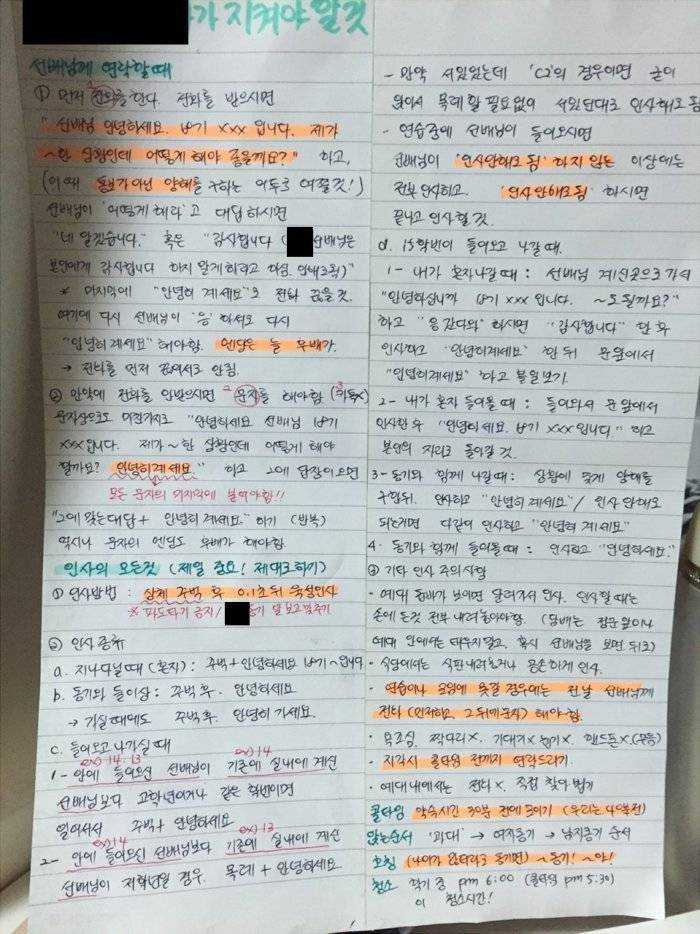 가 지켜야 할것
선배님께 연락할때
① 먼저 전화를 한다. 전화를 받으시면
"선배님 안녕하세요. 뷰기 XXX 입니다. 제가
~한 상황인데 어떻게 해야 좋을까요?" 하고,
(이때 통보가 아닌 양해를 구하는 어투로 여쭐것!)
선배님이 '어떻게 해라'고 대답하시면
"네 알겠습니다." 혹은 "감사합니다 ( 선배님은
본인에게 감사합니다 하지 말게하라고 하심. 안해도됨)"
* 마지막에 "안녕히 계세요"로 전화 끊을 것.
여기에 다시 선배님이 '응' 하셔도 다시
"안녕히계세요" 해야함. 엔딩은 늘 후배가.
→ 전화를 먼저 끊어서도 안됨.
② 만약에 전화를 안받으시면 문자를 해야함 (카톡X)
문자상으로도 마찬가지로 "안녕하세요 선배님
XXX입니다. 제가 ~한 상황인데 어떻게 해야
할까요? 안녕히계세요" 하고 그에 답장이오면
모든 문자의 마지막에 붙여야함!!
"그에 맞는대답 + 안녕히계세요" 하기 (반복)
역시나 문자의 엔딩도 후배가 해야함
인사의 모든것 (제일 중요! 제대로하기)
① 인사방법 : 상체 주박 후 0.1초뒤 육성인사
* 파도타기 금지/ 동기 말 보고맞추기
② 인사 종류
a. 지나다닐때 (혼자) : 주박 + 안녕하세요
b. 동기와 둘이상 : 주박 후. 안녕하세요
→ 가실때에도 주박후. 안녕히 가세요.
c. 들어오고 나가실 때
ex) 14 13 ex) 14
1- 안에 들어오신 선배님이 기존에 실내에 계신
선배님보다 고학년이거나 같은 학번이면
일어서서 주박 + 안녕하세요
ex) 14 ex) 13
2- 안에 들어오신 선배님보다 기존에 실내에 계신
선배님이 저학년일 경우 목례 + 안녕하세요
- 만약 서있었는데 'C2'의 경우이면 굳이
앉아서 목례할 필요없이 서있던대로 인사해도 됨
- 연습중에 선배님이 들어오시면
선배님이 '인사안해도 됨' 하지 않는 이상에는
전부 인사하고. '인사안해도됨' 하시면
끝나고 인사할 것.
d. 15학번이 들어오고 나갈 때.
1- 내가 혼자나갈 때 : 선배님 계신곳으로 가서
"안녕하십니까 XXX 입니다. ~도될까요?"
하고 "응 갔다와" 하시면 "감사합니다" 한 후
인사하고 "안녕히계세요" 한 뒤 문앞에서
"안녕히계세요" 하고 볼일보기
2- 내가 혼자 들어올 때 : 들어와서 문앞에서
인사한 후 "안녕하세요. XXX입니다." 하고
본인의 자리로 돌아갈 것.
3- 동기와 함께 나갈때 : 상황에 맞게 양해를
구한뒤. 인사하고 "안녕히계세요" / 인사안해도
되는게면 다같이 인사하고 "안녕히계세요"
4. 동기와 함께 들어올때 : 인사하고 "안녕하세요."
③ 기타 인사 주의사항
- 예대 선배가 보이면 달려가서 인사. 인사할때는
손에 든것 전부 내려놓아야함 (담배는 정문앞이나
예대 안에서는 태우지말고, 혹시 선배님을 보면 뒤로)
- 식당에서는 식판내려놓거나 공손하게 인사.
- 연습이나 모임에 못갈 경우에는 전날 선배님께
전화 (먼저하고, 그뒤에문자) 해야함.
- 목조심, 짝다리X, 기대기X 핸드폰X (무음)
- 지각시 콜타임 전까지 연락드리기.
- 예대내에서는 전화X. 직접 찾아뵙기
콜타임 약속시간 30분 전에 모이기 (우리는 40분전)
앉는순서 '과대' → 여자동기 → 남자동기 순서
호칭 (나이가 많더라도 동기면) ~동기! ~야!
청소 학기 중 pm 6:00 (콜타임 pm 5:30)
이 청소시간!